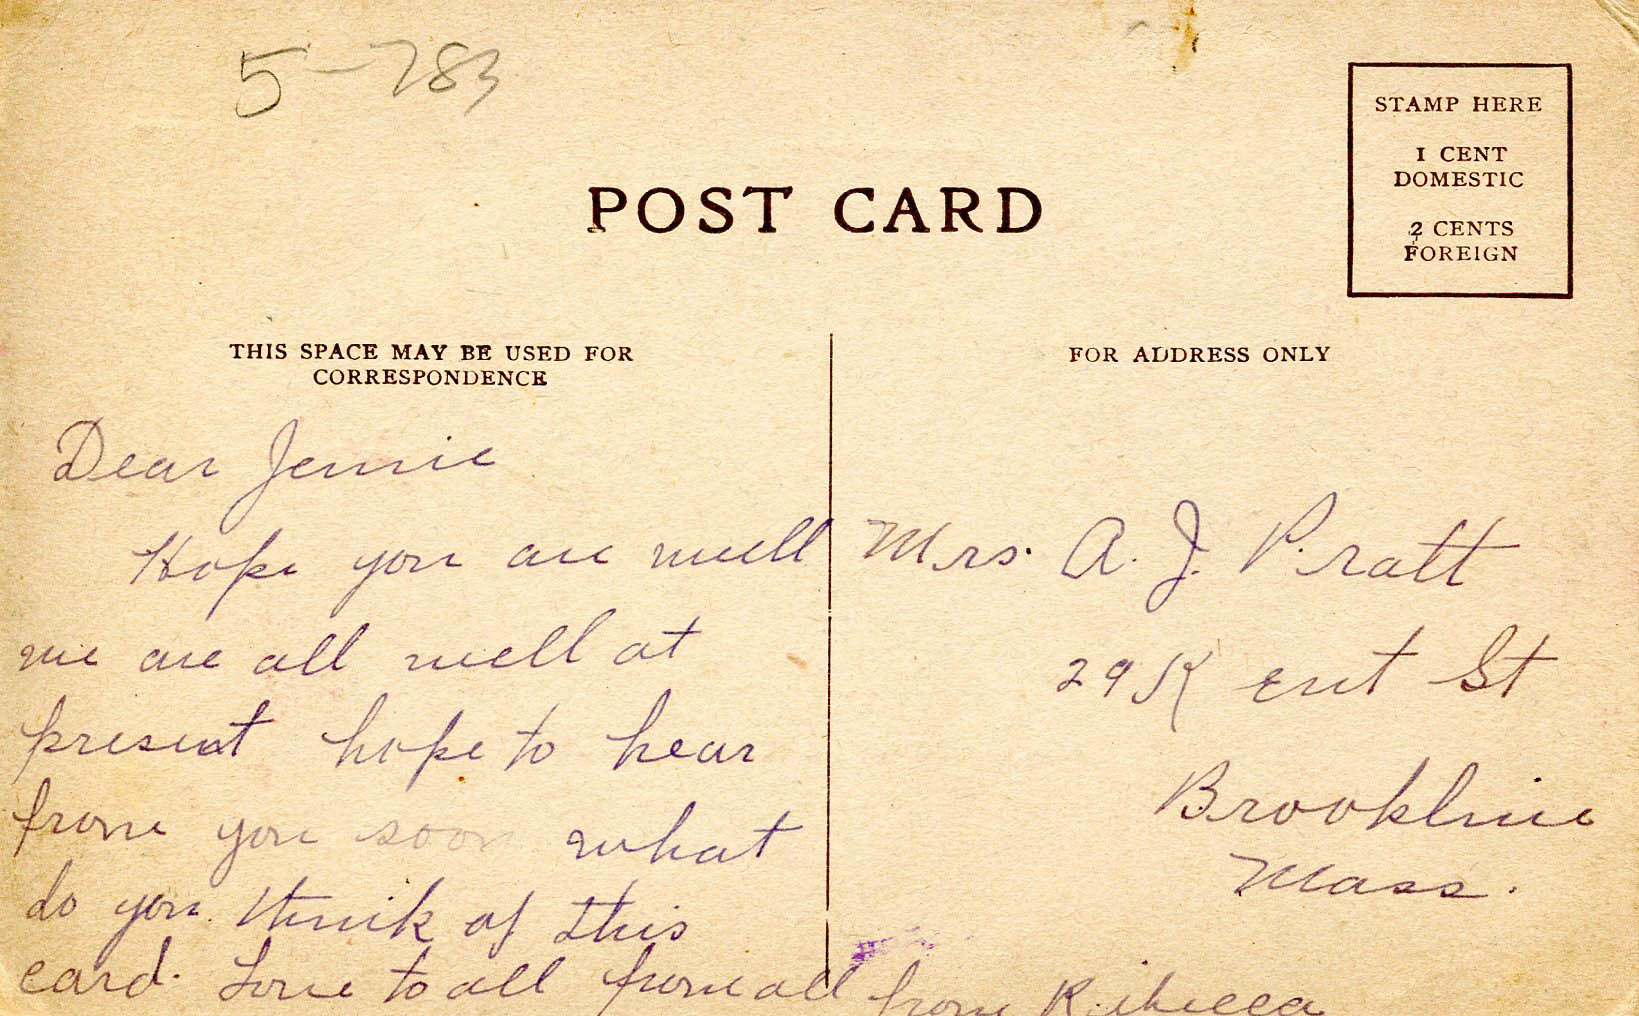 5-783
POST CARD
STAMP HERE
1 CENT
DOMESTIC
2 CENTS
FOREIGN
THIS SPACE MAY BE USED FOR
CORRESPONDENCE
Dear Jennie
Hope you are well
we are all well at
present hope to hear
from you soon what
do you think of this
card. Love to all from all from Rebecca
FOR ADDRESS ONLY
Mrs. A. J. Pratt
29 Kent St
Brookline
Mass.